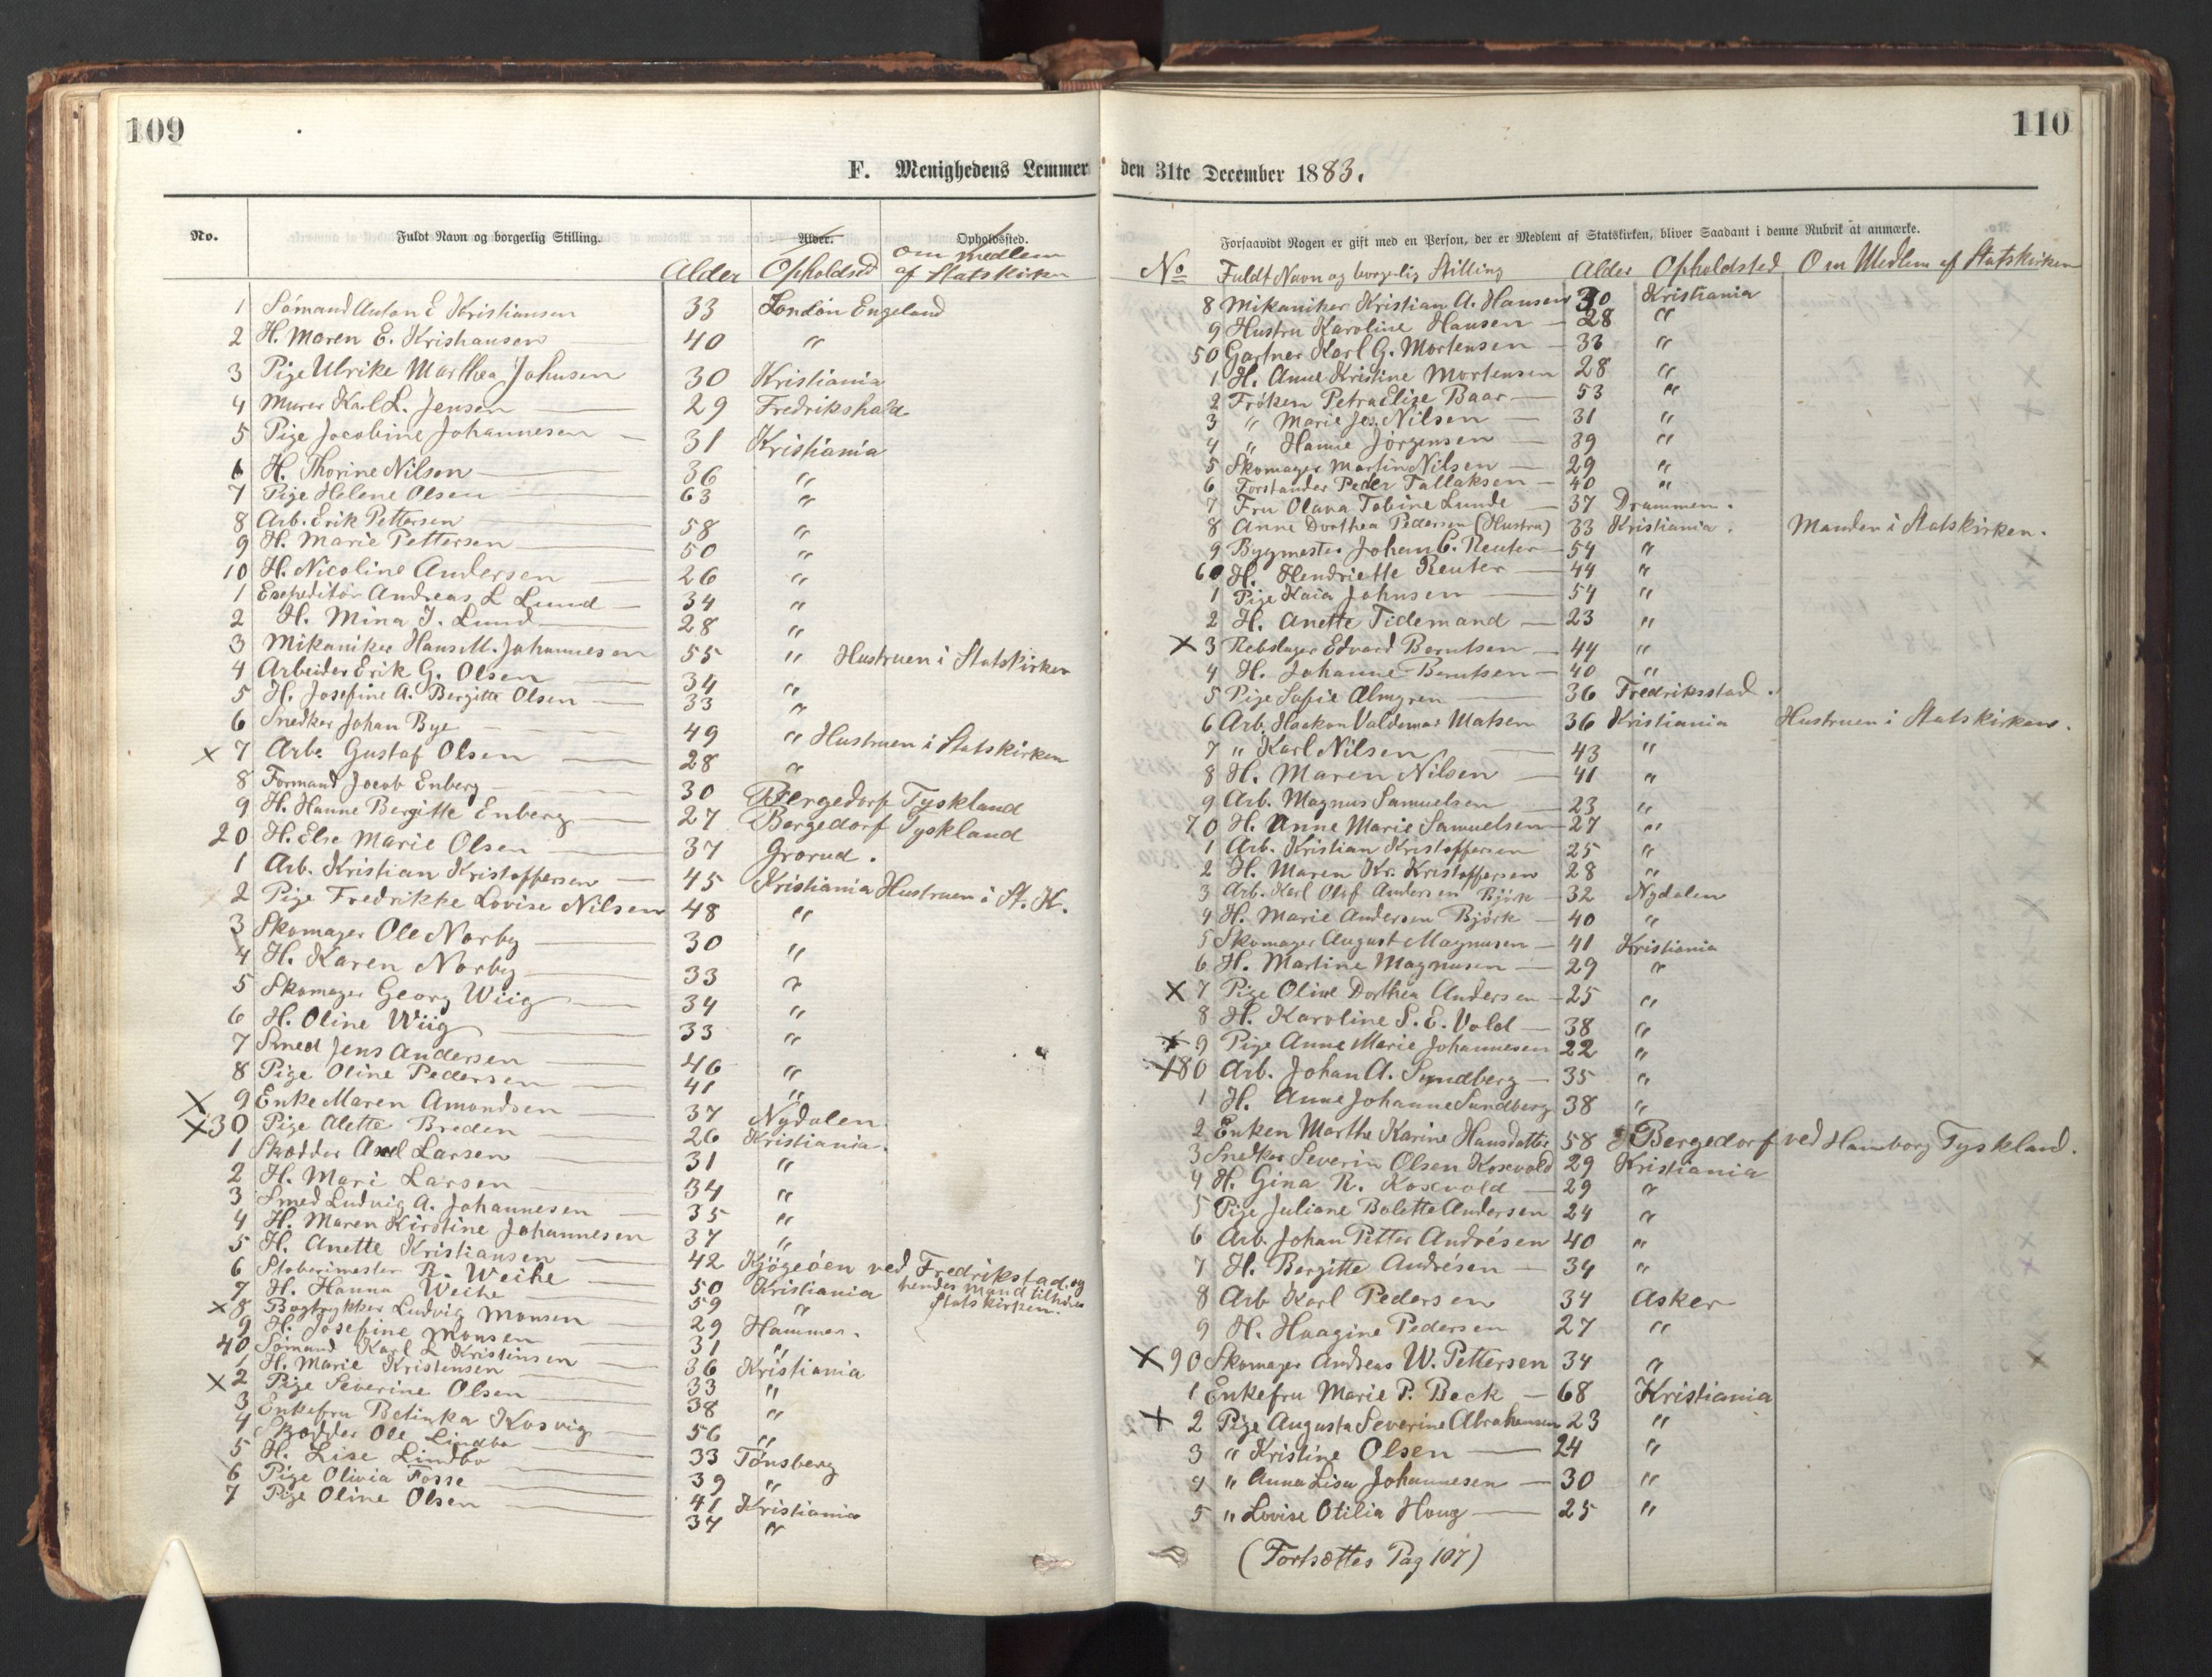 109
F. Menighedens Lemmer
No. Fuldt Navn og borgerlig Stilling. Alder. Opholdssted.
Alder Opholdsted om medlem af Statskirken
1 Sömand Anton E Kristiansen 33 London Engeland
2 H. Maren E. Kristiansen 40 "
3 Pige Ulrike Marthea Johnsen 30 Kristiania
4 Murer Karl L. Jensen 29 Fredrikshald
5 Pige Jocobine Johannesen 31 Kristiania
6 H. Thorine Nilsen 36 "
7 Pige Helene Olsen 63 "
8 Arb. Erik Pettersen 58 "
9 H. Marie Pettersen 50 "
10 H. Nicoline Andersen 26 "
1 Expeditör Andreas L Lund 34 "
2 H. Mina J. Lund 28 "
3 Mikaniker Hans M. Johannesen 55 " Hustruen i Statskirken
4 Arbeider Erik G. Olsen 34 "
5 H. Josefine A. Bergitte Olsen 33 "
6 Snedker Johan Bye 49 " Hustruen i Statskirken
x 7 Arb. Gustaf Olsen 28 "
8 Formand Jocob Enberg 30 Bergedorf Tyskland
9 H. Hanne Bergitte Enberg 27 Bergedorf Tyskland
20 H. Else Marie Olsen 37 Grorud.
1 Arb. Kristian Kristoffersen 45 Kristiania Hustruen i St. K.
2 Pige Fredrikke Lovise Nilsen 48 "
3 Skomager Ole Norby 30 "
4 H. Karen Norby 33 "
5 Skomager Georg Wiig 34 "
6 H. Oline Wiig 33 "
7 Smed Jens Andersen 46 "
8 Pige Oline Pedersen 41 "
x 9 Enke Maren Amondsen 37 Nydalen
x 30 Pige Alette Breden 26 Kristiania.
1 Skrædder Axel Larsen 31 "
2 H. Mari Larsen 34 "
3 Smed Ludvig A. Johannesen 35 "
4 H. Maren Kirstine Johannesen 37 "
5 H. Anette Kristiansen 42 Kjögeöen ved Fredrikstad, og hendes mand tilhører Statskirken.
6 Støberimester R. Weihe 50 Kristiania
7 H. Hanna Weihe 59 "
x 8 Bogtrykker Ludvig Monsen 29 Hammer.
9 H. Josefine Monsen 31 "
40 Sömand Karl L Kristensen 36 Kristiania
1 H. Marie Kristensen 33 "
x 2 Pige Severine Olsen 38 "
3 Enkefru Betinka Kosvig 56 "
4 Skrædder Ole Lindbo 33 Tönsberg
5 H. Lise Lindbo 39 "
6 Pige Olivia Fosse 41 Kristiania
7 Pige Oline Olsen 37 "
110
den 31te December 1883.
Forsaavidt Nogen er gift med en Person, der er Medlem af Statskirken, bliver Saadant i denne Rubrik at anmærke.
No Fuldt Navn og borgelig Stilling Alder Opholdsted Om Medlem af Statskirken
8 Mikaniker Kristian A. Hansen 30 Kristiania
9 Hustru Karoline Hansen 28 "
50 Gartner Karl G. Mortensen 33 "
1 H. Anne Kristine Mortensen 28 "
2 Fröken Petra Elise Baar 53 "
3 " Marie Jes. Nilsen 31 "
4 " Hanne Jörgensen 39 "
5 Skomager Martin Nilsen 29 "
6 Forstander Peder Tallaksen 40 "
7 Fru Olava Tobine Lunde 37 Drammen.
8 Anne Dorthea Pedersen (Hustru) 33 Kristiania. Manden i Statskirken.
9 Bygmester Johan C. Reuter 54 "
60 H. Hendriette Reuter 44 "
1 Pige Kaia Johnsen 54 "
2 H. Anette Tidemand 23 "
x 3 Rebslager Edvard Berntsen 44 "
4 H. Johanne Berntsen 40 "
5 Pige Sofie Almgren 36 Fredriksstad.
6 Arb. Haakon Valdemar Matsen 36 Kristiania Hustruen i Statskirken.
7 " Karl Nilsen 43 "
8 H. Maren Nilsen 41 "
9 Arb. Magnus Samuelsen 23 "
70 H. Anne Marie Samuelsen 27 "
1 Arb. Kristian Kristoffersen 25 "
2 H. Maren Kr. Kristoffersen 28 "
3 Arb. Karl Olof Andersen Björk 32 Nydalen
4 H. Marie Andersen Björk 40 "
5 Skomager August Magnusen 41 Kristiania
6 H. Martine Magnusen 29 "
x 7 Pige Olive Dorthea Andersen 25 "
8 H. Karoline S. E. Vold 38 "
x 9 Pige Anne Marie Johannesen 22 "
x 80 Arb. Johan A. Sundberg 35 "
1 H. Anne Johanne Sundberg 38 "
2 Enken Marthe Karine Hansdatter 58 Bergedorf ved Hamborg Tyskland.
3 Snedker Severin Olsen Kosevold 29 Kristiania
4 H. Gina R. Kosevold 29 "
5 Pige Juliane Bolette Andersen 24 "
6 Arb. Johan Petter Andrésen 40 "
7 H. Bergitte Andrésen 34 "
8 Arb Karl Pedersen 34 Asker
9 H. Haagine Pedersen 27 "
x 90 Skomager Andreas W. Pettersen 34 "
1 Enkefru Marie P. Beck 68 Kristiania
x 2 Pige Augusta Severine Abrahamsen 23 "
3 " Kristine Olsen 24 "
4 " Anna Lisa Johannesen 30 "
5 " Lovise Otilia Houg 25 "
(Fortsættes Pag 107)